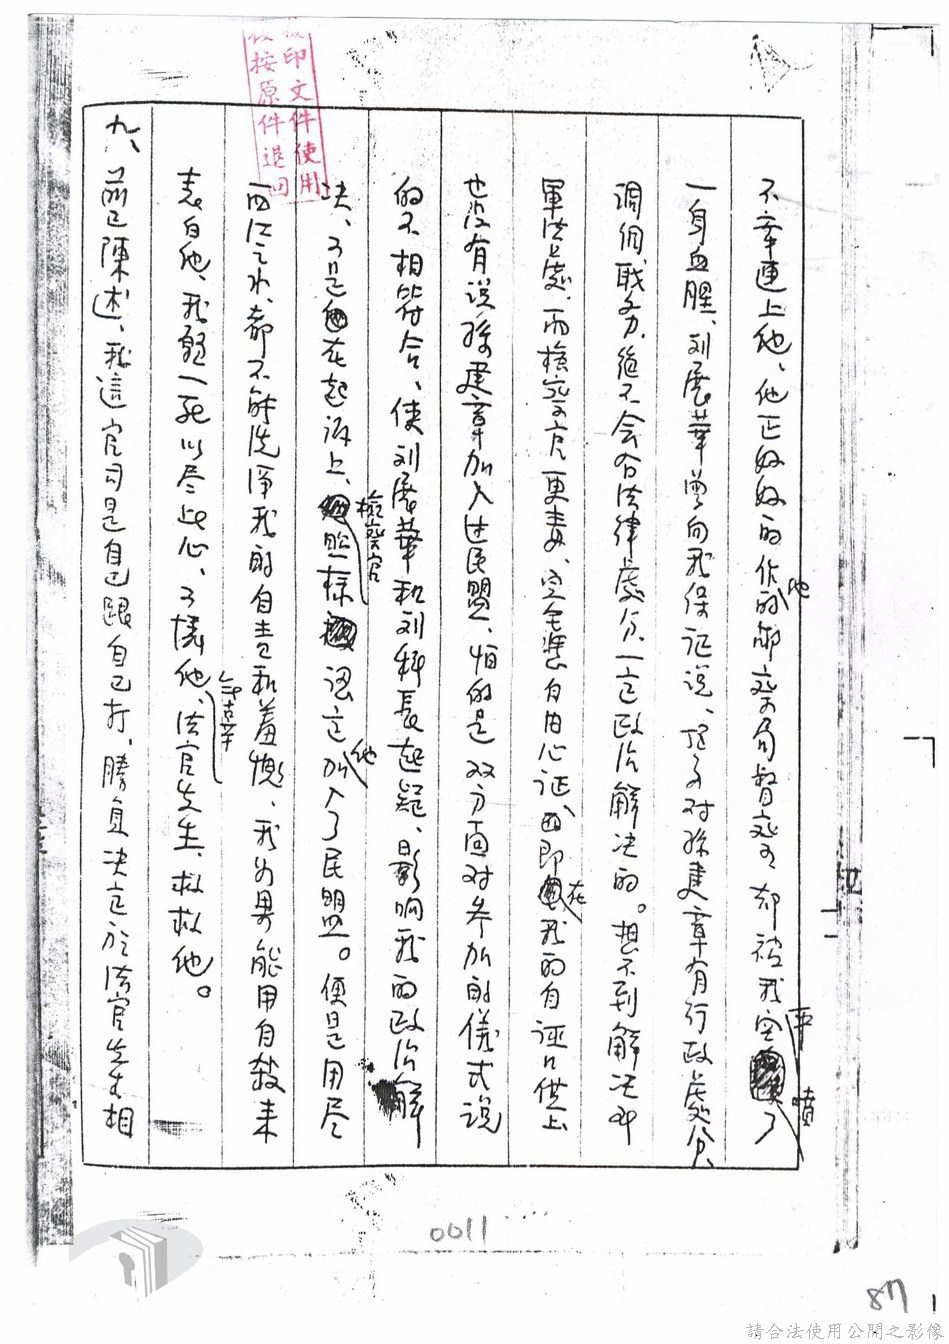 複印文件使用
後按原件退回
不幸連上他、他正好好的作他的鄉祭局督察、却被我空平噴了
一身血腥、刘展華曾向我保证说、
对孫建章有行政處分、
調個職务、絶不会有法律處分、一定政治解决的。想不到解决
軍法處、而檢察官更毒、完全憑自由心证、
即在我的自誣口供上
也没有说孫建章加入过民盟、怕的是双方面对参加的儀式说
的不相符合、使刘展華和刘科長起疑、影响我的政治解
决、可是
在起诉上、檢察官
照樣
認定他加入了民盟。便是用尽
西江之水、都不能洗淨我的自责和羞愧、我如果能用自殺来
表白他、我願一死以尽此心、可憐他無辜、法官先生、救救他。
九、前已陳述、我這官司是自己跟自己打、勝負决定於法官先生相
0011
87
請合法使用公開之影像